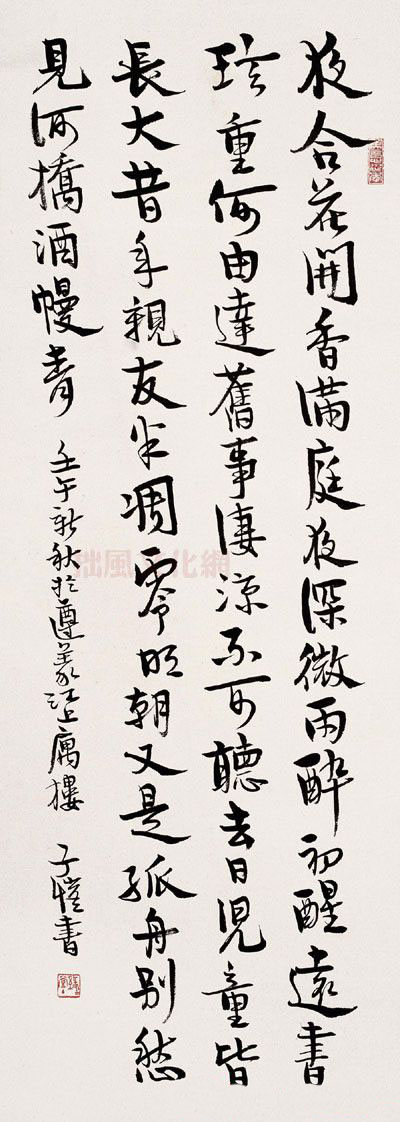 夜合花開香滿庭夜深微雨醉初醒遠書
珍重何由達舊事悽涼不可聽去日兒童皆
長大昔年親友半凋零明朝又是孤舟別愁
見河橋酒幔青 壬午新秋於遵義江上庽樓 子愷書
拙風文化網